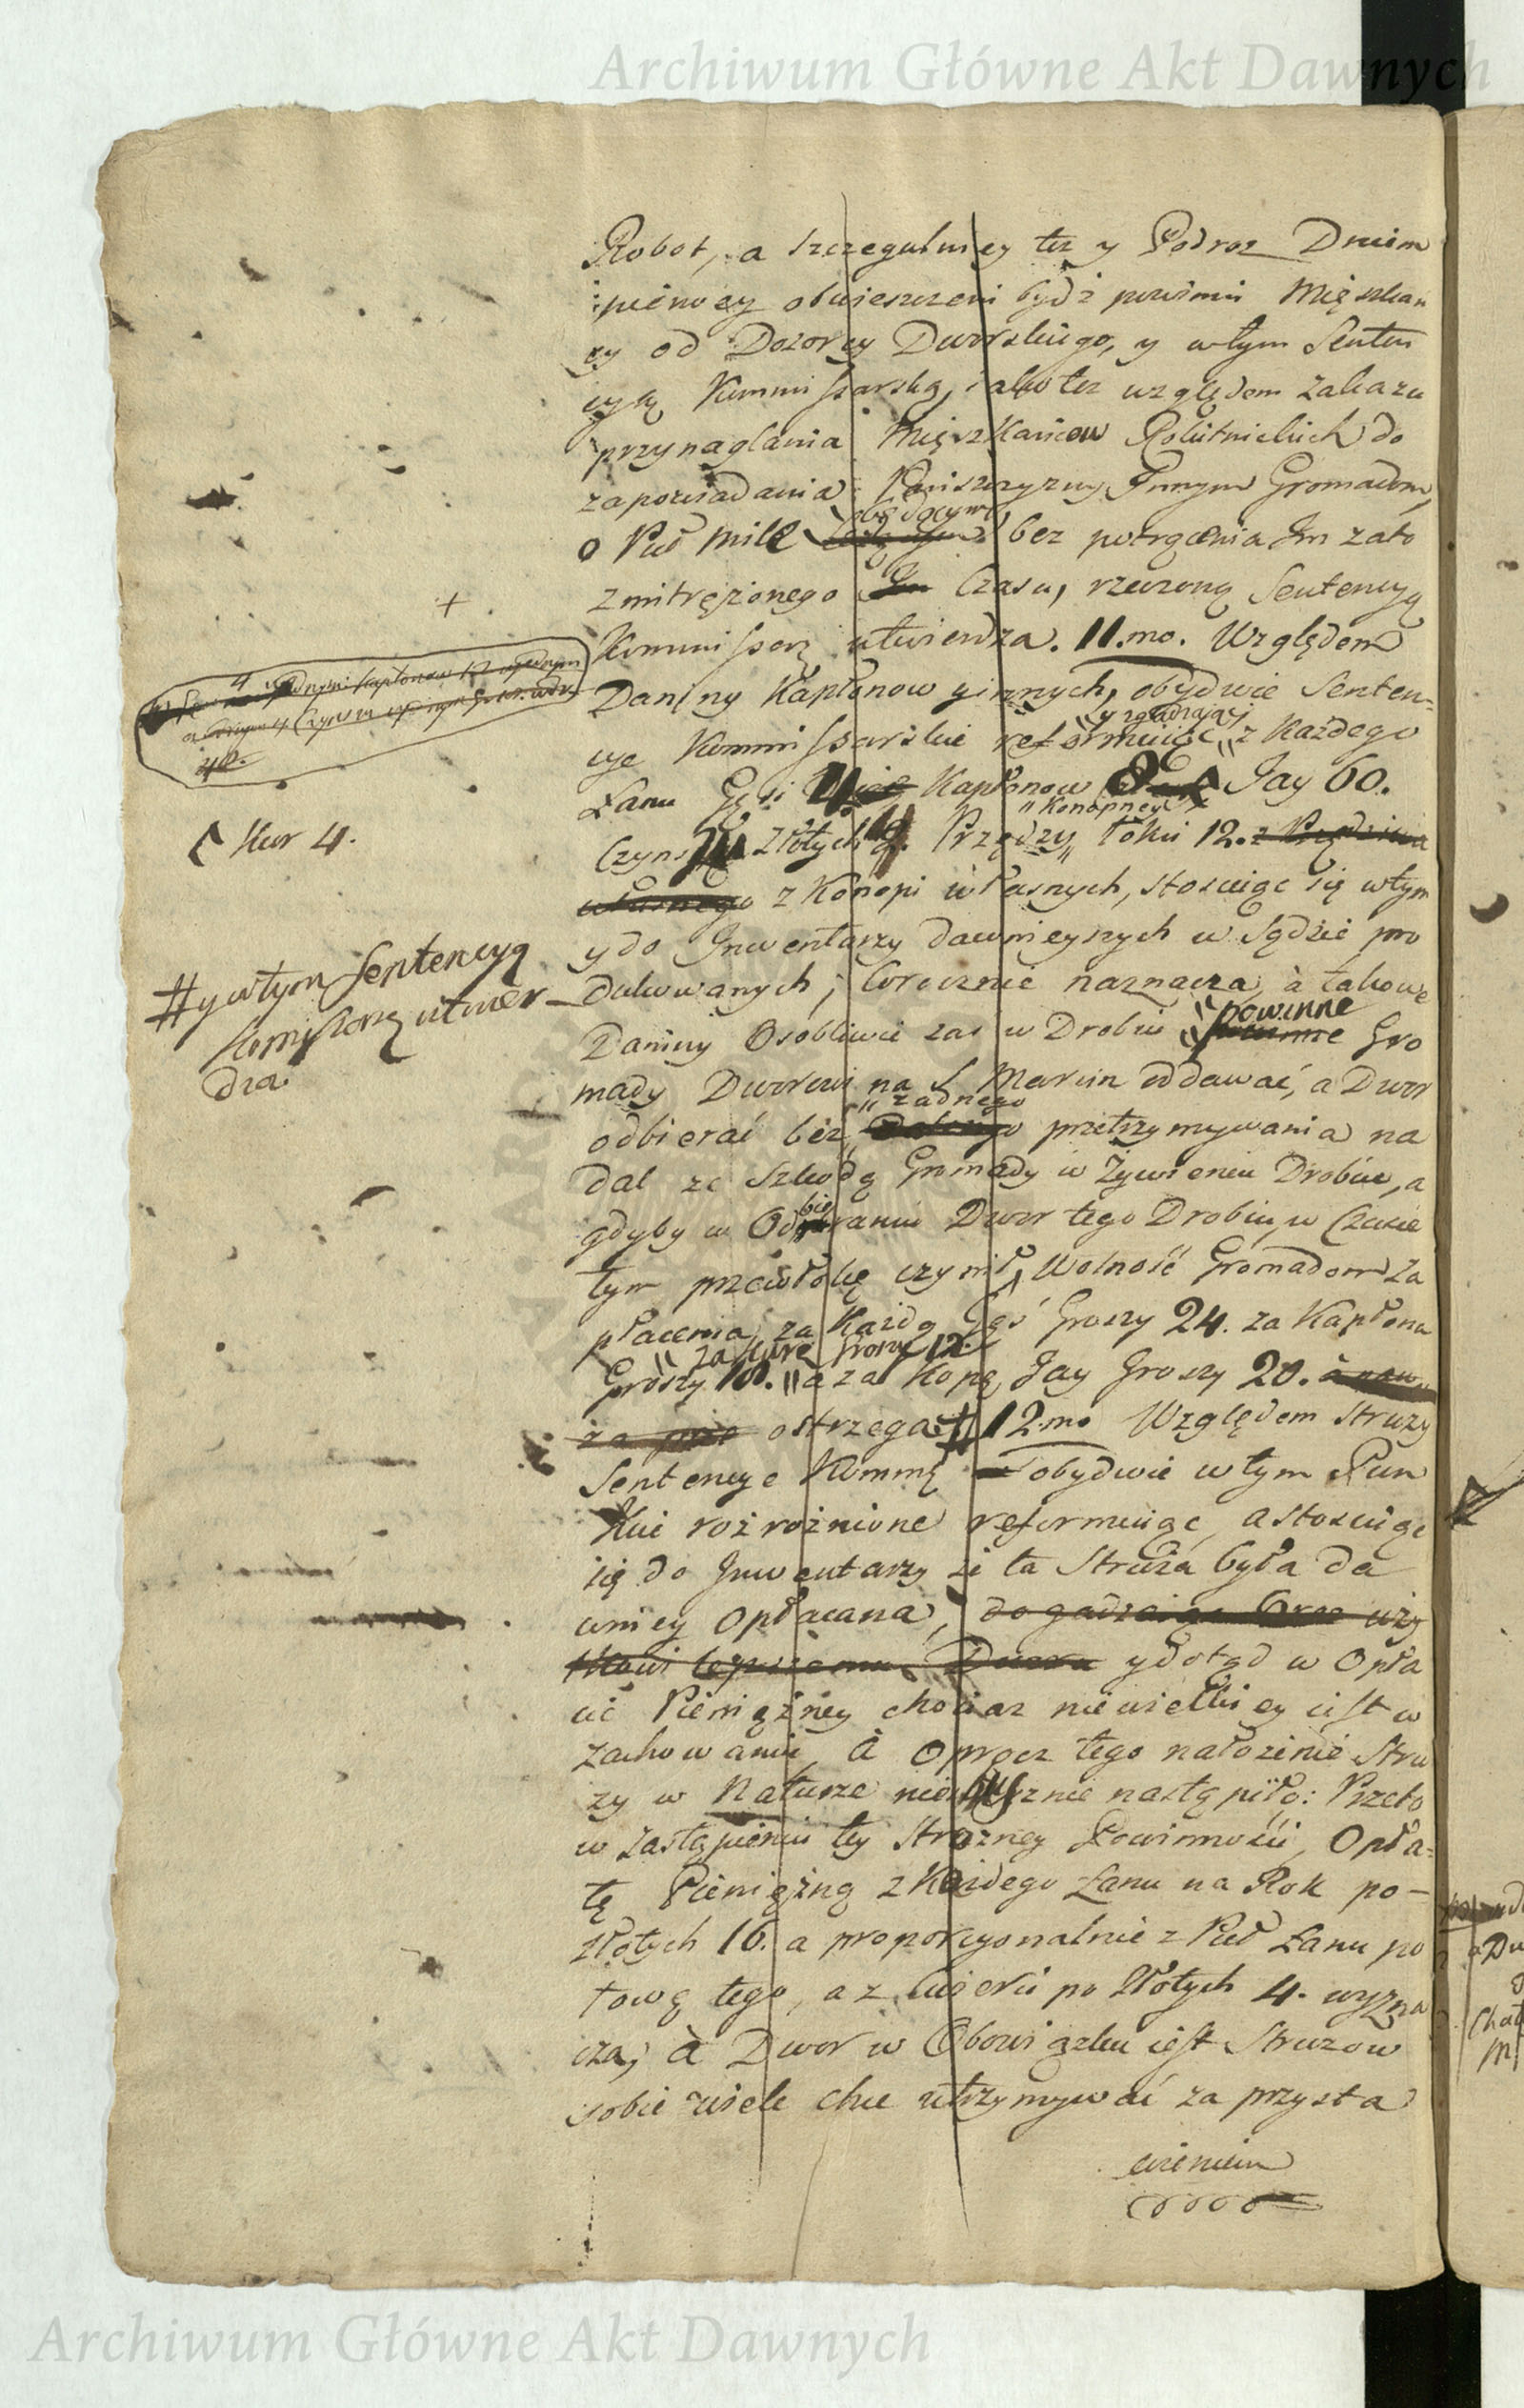 Archiwum Główne Akt Dawnych
Robot, a szczegulniey też y Podroz Dniem
pierwey obwieszczeni bydź powinni Mięszkań
cy od Dozorcy Dworskiego, y wtym Senten
cyą Kommissarską, iako też względem zakazu
przynaglania Mięszkańcow Robitnickich do
zapowiadania Panszczyzny Innym Gromadom,
o Puł mile będącym bez potrącenia Im zato
zmitrężonego Czasu, rzeczoną Sentencyą
Kommissar: utwierdza. 11.mo. Względem
Daniny Kapłonow y innych, obydwie Senten=
cye Kommissarskie reformuiąc y zgadzaiąc z Każdego
Łanu Gęsi Kapłonow 8 Jay 60.
Kur 4.
Czynszu Złotych Przędzy Konopney łokci 12. z Przędziwa
własnego z Konopi własnych, stosuiąc się wtym
y do Inwentarzy dawnieyszych w Sądzie pro
dukowanych, corocznie naznacza, à takowe
Daniny Osobliwie zaś w Drobiu powinne Gro
mady Dworowi na S. Marcin oddawać, a Dwor
odbierać bez żadnego przetrzymywania na
dal ze Szkodą Gromady w Żywieniu Drobiu, a
gdyby w Odbieraniu Dwor tego Drobiu, w Czasie
tym przewłokę czynił, Wolność Gromadom za
płacenia za Każdą Gęś Groszy 24. za Kapłona
Groszy 18. za Kurę Groszy 12. a za Kopę Jay Groszy 20.
ostrzega # 12.mo Względem Struży
# y wtym Sentencyą
Komissarę utwier
dza.
Sentencye Kommę obydwie wtym Pun
kcie rożrożnione reformuiąc, a stosuiąc
się do Inwentarzy że ta Struża była da
wniey opłacana, dogadzaiąc
y dotąd w Opła
cie Pieniężney chociaz niewielkiey iest w
zachowaniu, à oprocz tego nałożenie Stru
ży w Naturze nastąpiło: Przeto
w zastąpieniu tey Strożney Powinności, Opła=
tę Pieniężną z Każdego Łanu na Rok po-
złotych 16. a proporcyonalnie z Puł Łanu po
łowę tego, a z Cwierci po Złotych 4. wyzna
cza, à Dwor w Obowiązku iest Strużow
sobie wiele chce utrzymywać za przysta
wieniem
Archiwum Główne Akt Dawnych